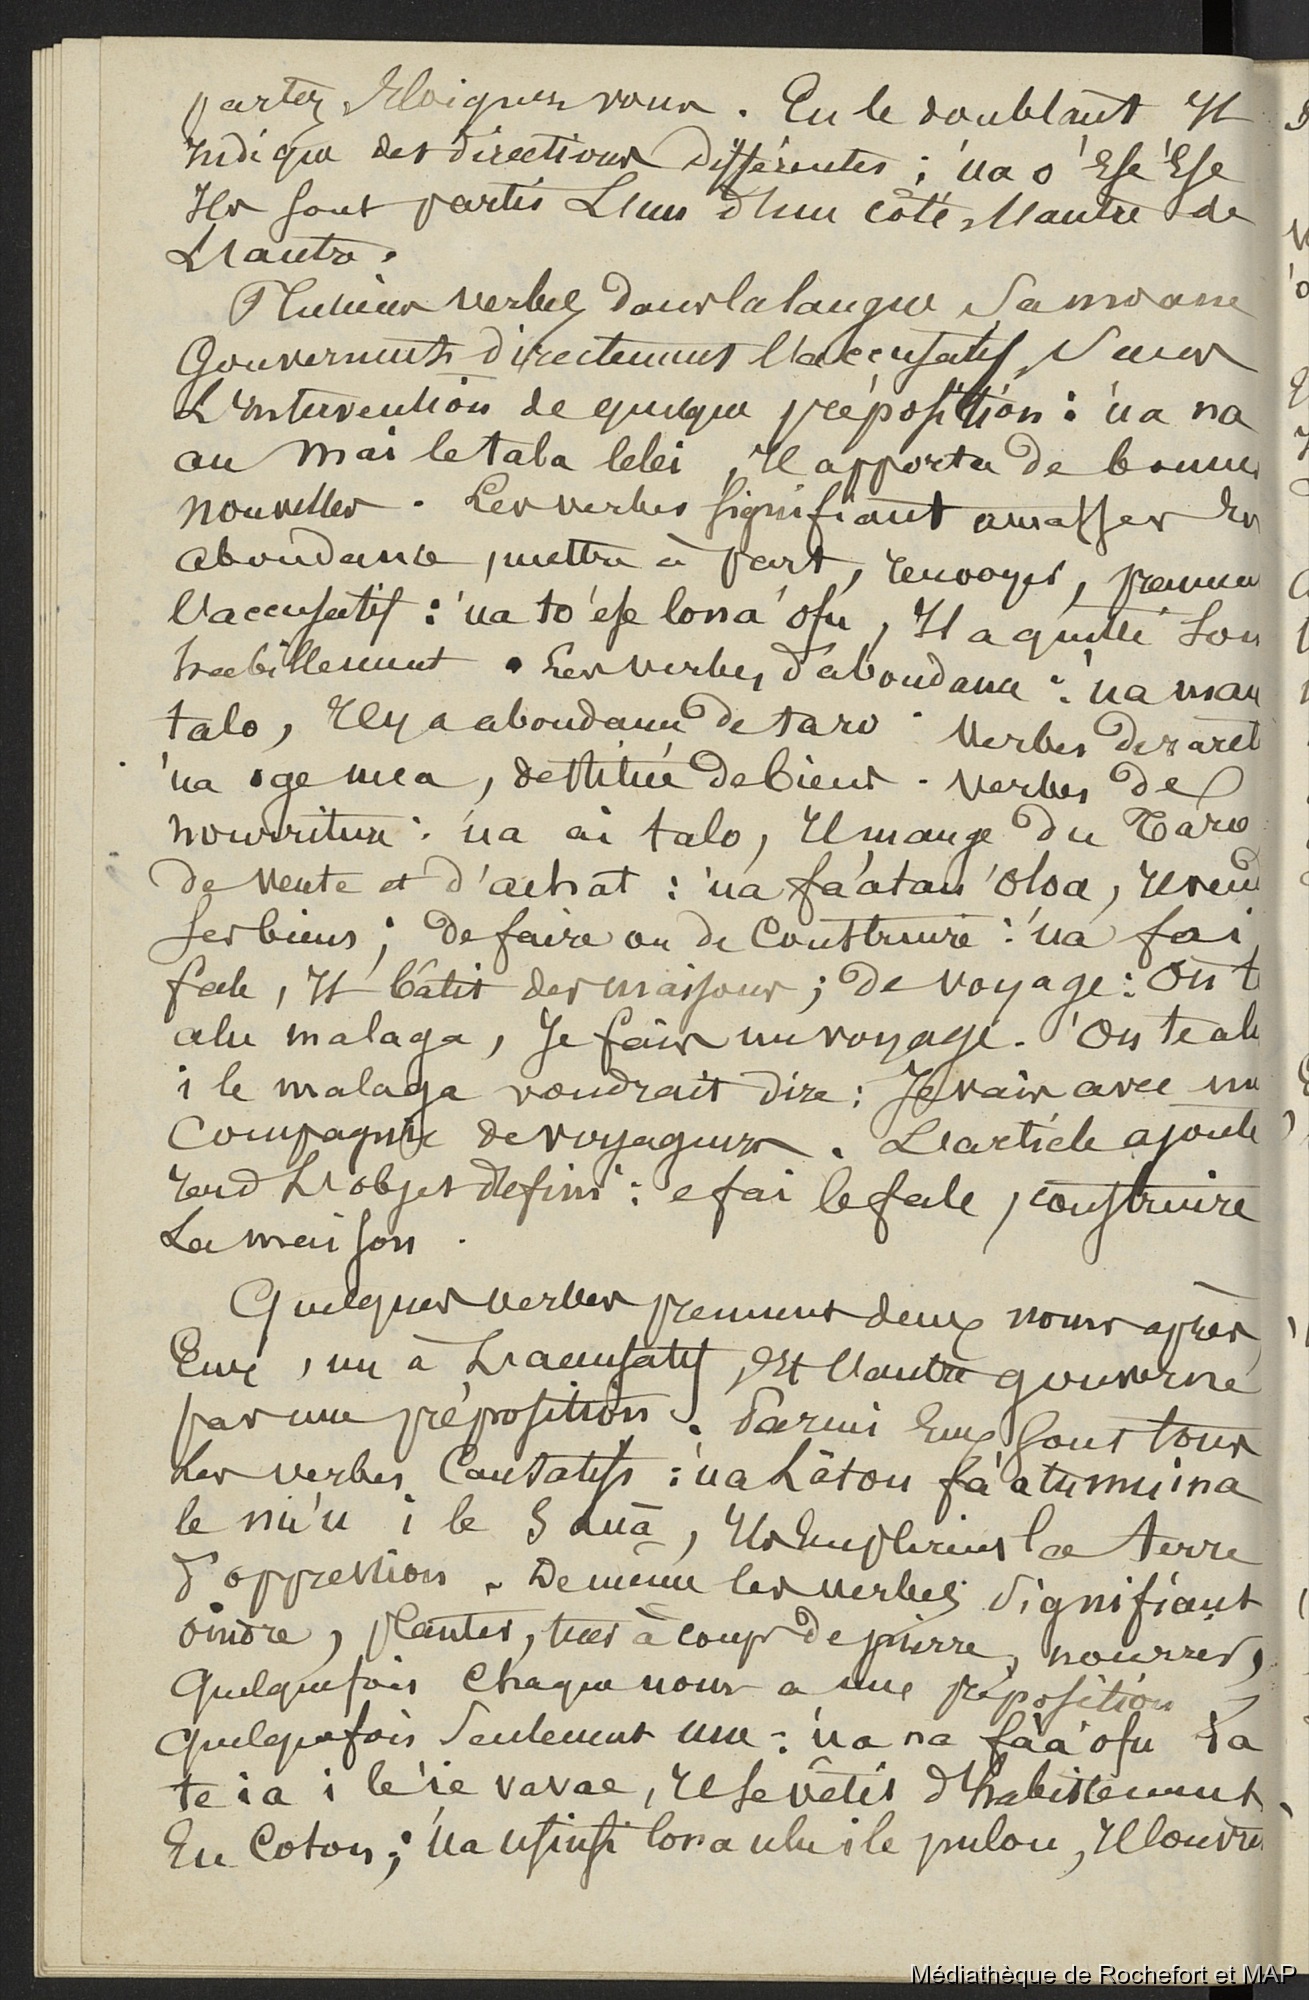 partez, Eloignez vous. En le doublant Il
Indique des directions différentes; 'ua ō 'Ese 'Ese
Ils sont partis L'un d'un côté, l'autre de
L'autre.
Plusieurs verbes dans la langue Samoane
Gouvernent directement l'accusatif, Sans
L'Intervention de quelque préposition: 'ua na
au mai le tala lelei, Il apporta de bonnes
nouvelles. Les verbes signifiant amasser En
abondance, mettre à part, renvoyer, prennen
l'accusatif: 'ua to 'ese lona 'ofu, Il a quitté Son
habillement. Les verbes d'abondance: 'ua mau
talo, Il y a abondance de taro. Verbes de rareté
'ua oge mea, destitué de biens. Verbes de
nourriture: 'ua ai talo, Il mange du Taro
de vente et d'achat: 'ua fa'atau 'oloa, Il vend
ses biens; de faire ou de Construire: 'ua fai
fale, Il bâtit des maisons; de voyage: Ou t
alu malaga, Je fais un voyage. 'Ou te alu
i le malaga voudrait dire: Je vais avec un
Compagnie de voyageurs. L'article ajouté
rend L'objet défini: e fai le fale, construire
La maison.
Quelques verbes prennent deux noms après
Eux, un à L'accusatif, Et l'autre gouverné
par une préposition. Parmi Eux sont tous
Les verbes Causatifs: 'ua Lātou fa'atumuina
le nu'u i le Sauā, Ils Emplirent la terre
d'oppression. De même les verbes Signifiant
oindre, planter, tuer à coups de pierre, nourrir,
Quelquefois Chaque nom a une préposition
Quelquefois Seulement une: 'ua na fa'a'ofu ia
te ia i le 'ie vavae, Il se vêtit d'habillement
En Coton; 'Ua ufiufi lona ulu i le pulou, Il couvre
Médiathèque de Rochefort et MAP